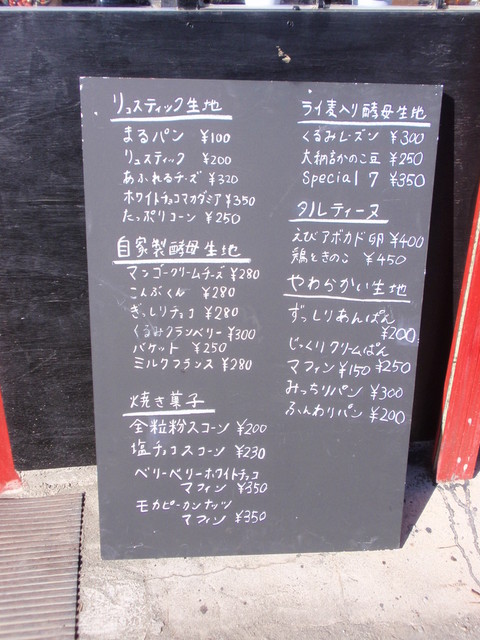 リュスティック生地
まるパン ¥100
リュスティック ¥200
あふれるチーズ ¥320
ホワイトチョコマカダミア ¥350
たっぷりコーン ¥250
自家製酵母生地
マンゴークリームチーズ ¥280
こんぶくん ¥280
ぎっしりチョコ ¥280
くるみクランベリー ¥300
バケット ¥250
ミルクフランス ¥280
焼き菓子
全粒粉スコーン ¥200
塩チョコスコーン ¥230
ベリーベリーホワイトチョコ
マフィン ¥350
モカピーカンナッツ
マフィン ¥350
ライ麦入り酵母生地
くるみレーズン ¥300
大納言かのこ豆 ¥250
Special 7 ¥350
タルティーヌ
えびアボカド卵 ¥400
鶏ときのこ ¥450
やわらかい生地
ずっしりあんぱん
¥200
じっくりクリームぱん
¥250
マフィン ¥150
みっちりパン ¥300
ふんわりパン ¥200